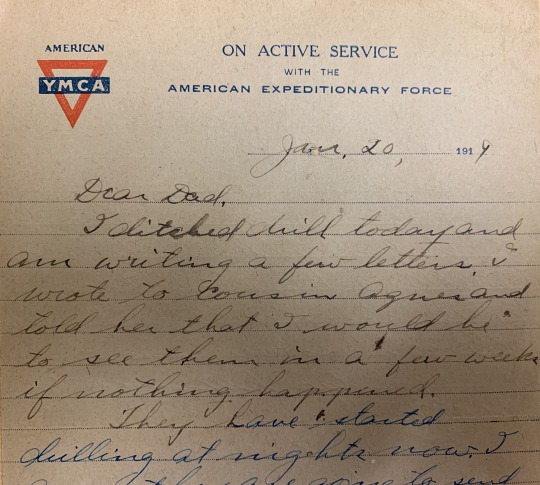 AMERICAN
YMCA
ON ACTIVE SERVICE
WITH THE
AMERICAN EXPEDITIONARY FORCE
Jan. 20, 1919
Dear Dad,
I ditched drill today and
am writing a few letters. I
wrote to cousin Agnes and
told her that I would be
to see them in a few weeks
if nothing happened.
They have started
drilling at nights now. I
they are going to send